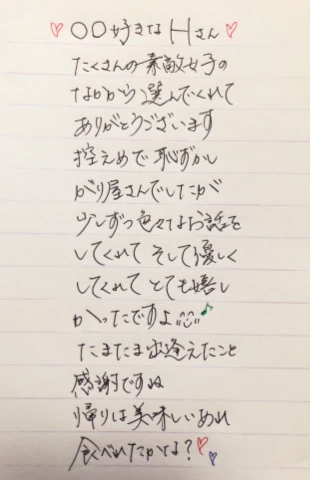 ♡○○好きなHさん♡
たくさんの素敵女子の
なかから選んでくれて
ありがとうございます
控えめで恥ずかし
がり屋さんでしたが
少しずつ色々なお話を
してくれて そして優しく
してくれて とても嬉し
かったですよ♪
たまたま出逢えたこと
感謝ですね
帰りは美味しいあれ
食べれたかな?♡♡